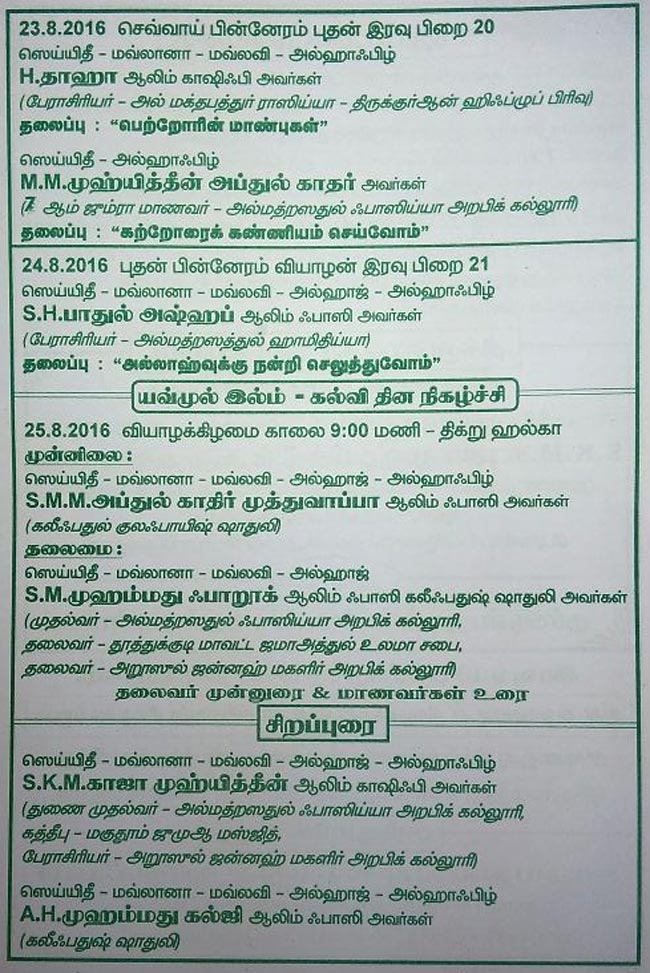 23.8.2016 செவ்வாய் பின்னேரம் புதன் இரவு பிறை 20
ஸெய்யிதீ – மவ்லானா – மவ்லவி – அல்ஹாஃபிழ்
H.தாஹா ஆலிம் காஷிஃபி அவர்கள்
(பேராசிரியர் – அல் மக்தபத்துர் ராஸிய்யா – திருக்குர்ஆன் ஹிஃப்ழுப் பிரிவு)
தலைப்பு : “பெற்றோரின் மாண்புகள்”
ஸெய்யிதீ – அல்ஹாஃபிழ்
M.M.முஹ்யித்தீன் அப்துல் காதர் அவர்கள்
(7 ஆம் ஜும்ரா மாணவர் – அல்மத்றஸதுல் ஃபாஸிய்யா அறபிக் கல்லூரி)
தலைப்பு : “கற்றோரைக் கண்ணியம் செய்வோம்”
24.8.2016 புதன் பின்னேரம் வியாழன் இரவு பிறை 21
ஸெய்யிதீ – மவ்லானா – மவ்லவி – அல்ஹாஜ் – அல்ஹாஃபிழ்
S.H.பாதுல் அஷ்ஹப் ஆலிம் ஃபாஸி அவர்கள்
(பேராசிரியர் – அல்மத்றஸத்துல் ஹாமிதிய்யா)
தலைப்பு : “அல்லாஹ்வுக்கு நன்றி செலுத்துவோம்”
யவ்முல் இல்ம் – கல்வி தின நிகழ்ச்சி
25.8.2016 வியாழக்கிழமை காலை 9:00 மணி – திக்று ஹல்கா
முன்னிலை :
ஸெய்யிதீ – மவ்லானா – மவ்லவி – அல்ஹாஜ் – அல்ஹாஃபிழ்
S.M.M.அப்துல் காதிர் முத்துவாப்பா ஆலிம் ஃபாஸி அவர்கள்
(கலீஃபதுல் குலஃபாயிஷ் ஷாதுலி)
தலைமை :
ஸெய்யிதீ – மவ்லானா – மவ்லவி – அல்ஹாஜ்
S.M.முஹம்மது ஃபாறூக் ஆலிம் ஃபாஸி கலீஃபதுஷ் ஷாதுலி அவர்கள்
(முதல்வர் – அல்மத்றஸதுல் ஃபாஸிய்யா அறபிக் கல்லூரி,
தலைவர் – தூத்துக்குடி மாவட்ட ஜமாஅத்துல் உலமா சபை,
தலைவர் – அறூஸுல் ஜன்னஹ் மகளிர் அறபிக் கல்லூரி)
தலைவர் முன்னுரை & மாணவர்கள் உரை
சிறப்புரை
ஸெய்யிதீ – மவ்லானா – மவ்லவி – அல்ஹாஜ் – அல்ஹாஃபிழ்
S.K.M.காஜா முஹ்யித்தீன் ஆலிம் காஷிஃபி அவர்கள்
(துணை முதல்வர் – அல்மத்றஸதுல் ஃபாஸிய்யா அறபிக் கல்லூரி,
கத்தீபு – மகுதூம் ஜுமுஆ மஸ்ஜித்,
பேராசிரியர் – அறூஸுல் ஜன்னஹ் மகளிர் அறபிக் கல்லூரி)
ஸெய்யிதீ – மவ்லானா – மவ்லவி – அல்ஹாஜ் – அல்ஹாஃபிழ்
A.H.முஹம்மது கல்ஜி ஆலிம் ஃபாஸி அவர்கள்
(கலீஃபதுஷ் ஷாதுலி)